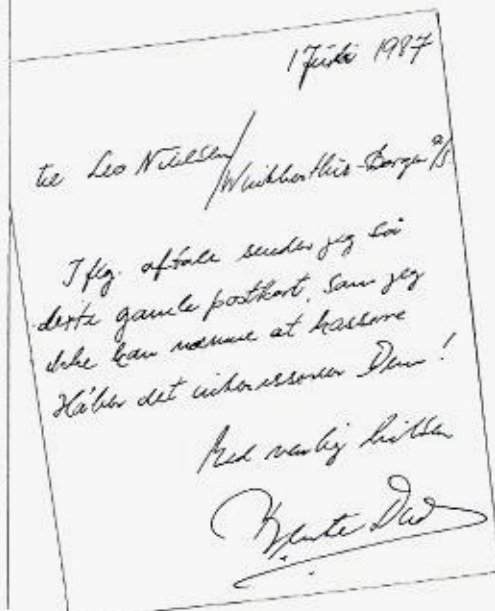 1 Juli 1987
til Leo Nielsen/
Borge a/s
Iflg. aftale sender jeg så
dette gamle postkort, som jeg
ikke kan nænne at kassere
Håber det interesserer Dem!
Med venlig hilsen
Bente